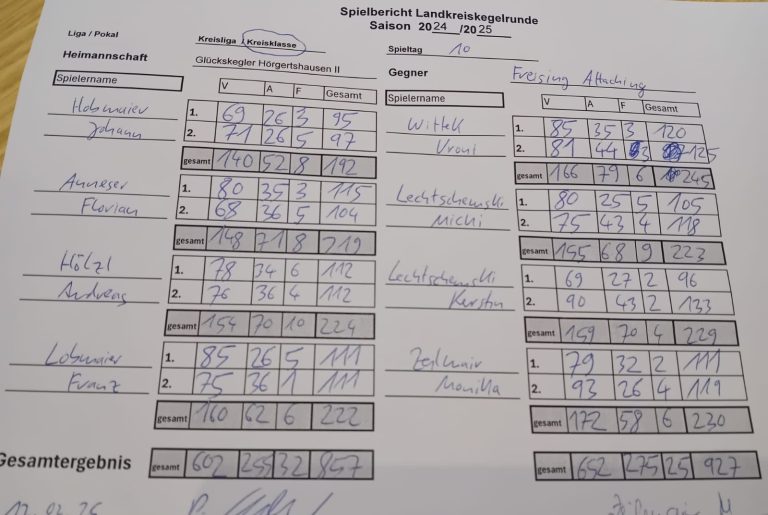 Spielbericht Landkreiskegelrunde
Saison 2024/2025
Liga / Pokal Kreisliga / Kreisklasse Spieltag 10
Heimannschaft Glückskegler Hörgertshausen II Gegner Freising Attaching
Spielername V A F Gesamt Spielername V A F Gesamt
Hobmaier 1. 69 26 3 95 Wittek 1. 85 35 3 120
Johann 2. 71 26 5 97 Vroni 2. 81 44 3 125
gesamt 140 52 8 192 gesamt 166 79 6 245
Anneser 1. 80 35 3 115 Lechtschemski 1. 80 25 5 105
Florian 2. 68 36 5 104 Michi 2. 75 43 4 118
gesamt 148 71 8 219 gesamt 155 68 9 223
Hölzl 1. 78 34 6 112 Lechtschemski 1. 69 27 2 96
Andreas 2. 76 36 4 112 Kerstin 2. 90 43 2 133
gesamt 154 70 10 224 gesamt 159 70 4 229
Lobmaier 1. 85 26 5 111 Zeilmair 1. 79 32 2 111
Franz 2. 75 36 1 111 Monika 2. 93 26 4 119
gesamt 160 62 6 222 gesamt 172 58 6 230
Gesamtergebnis gesamt 602 255 32 857 gesamt 652 275 25 927